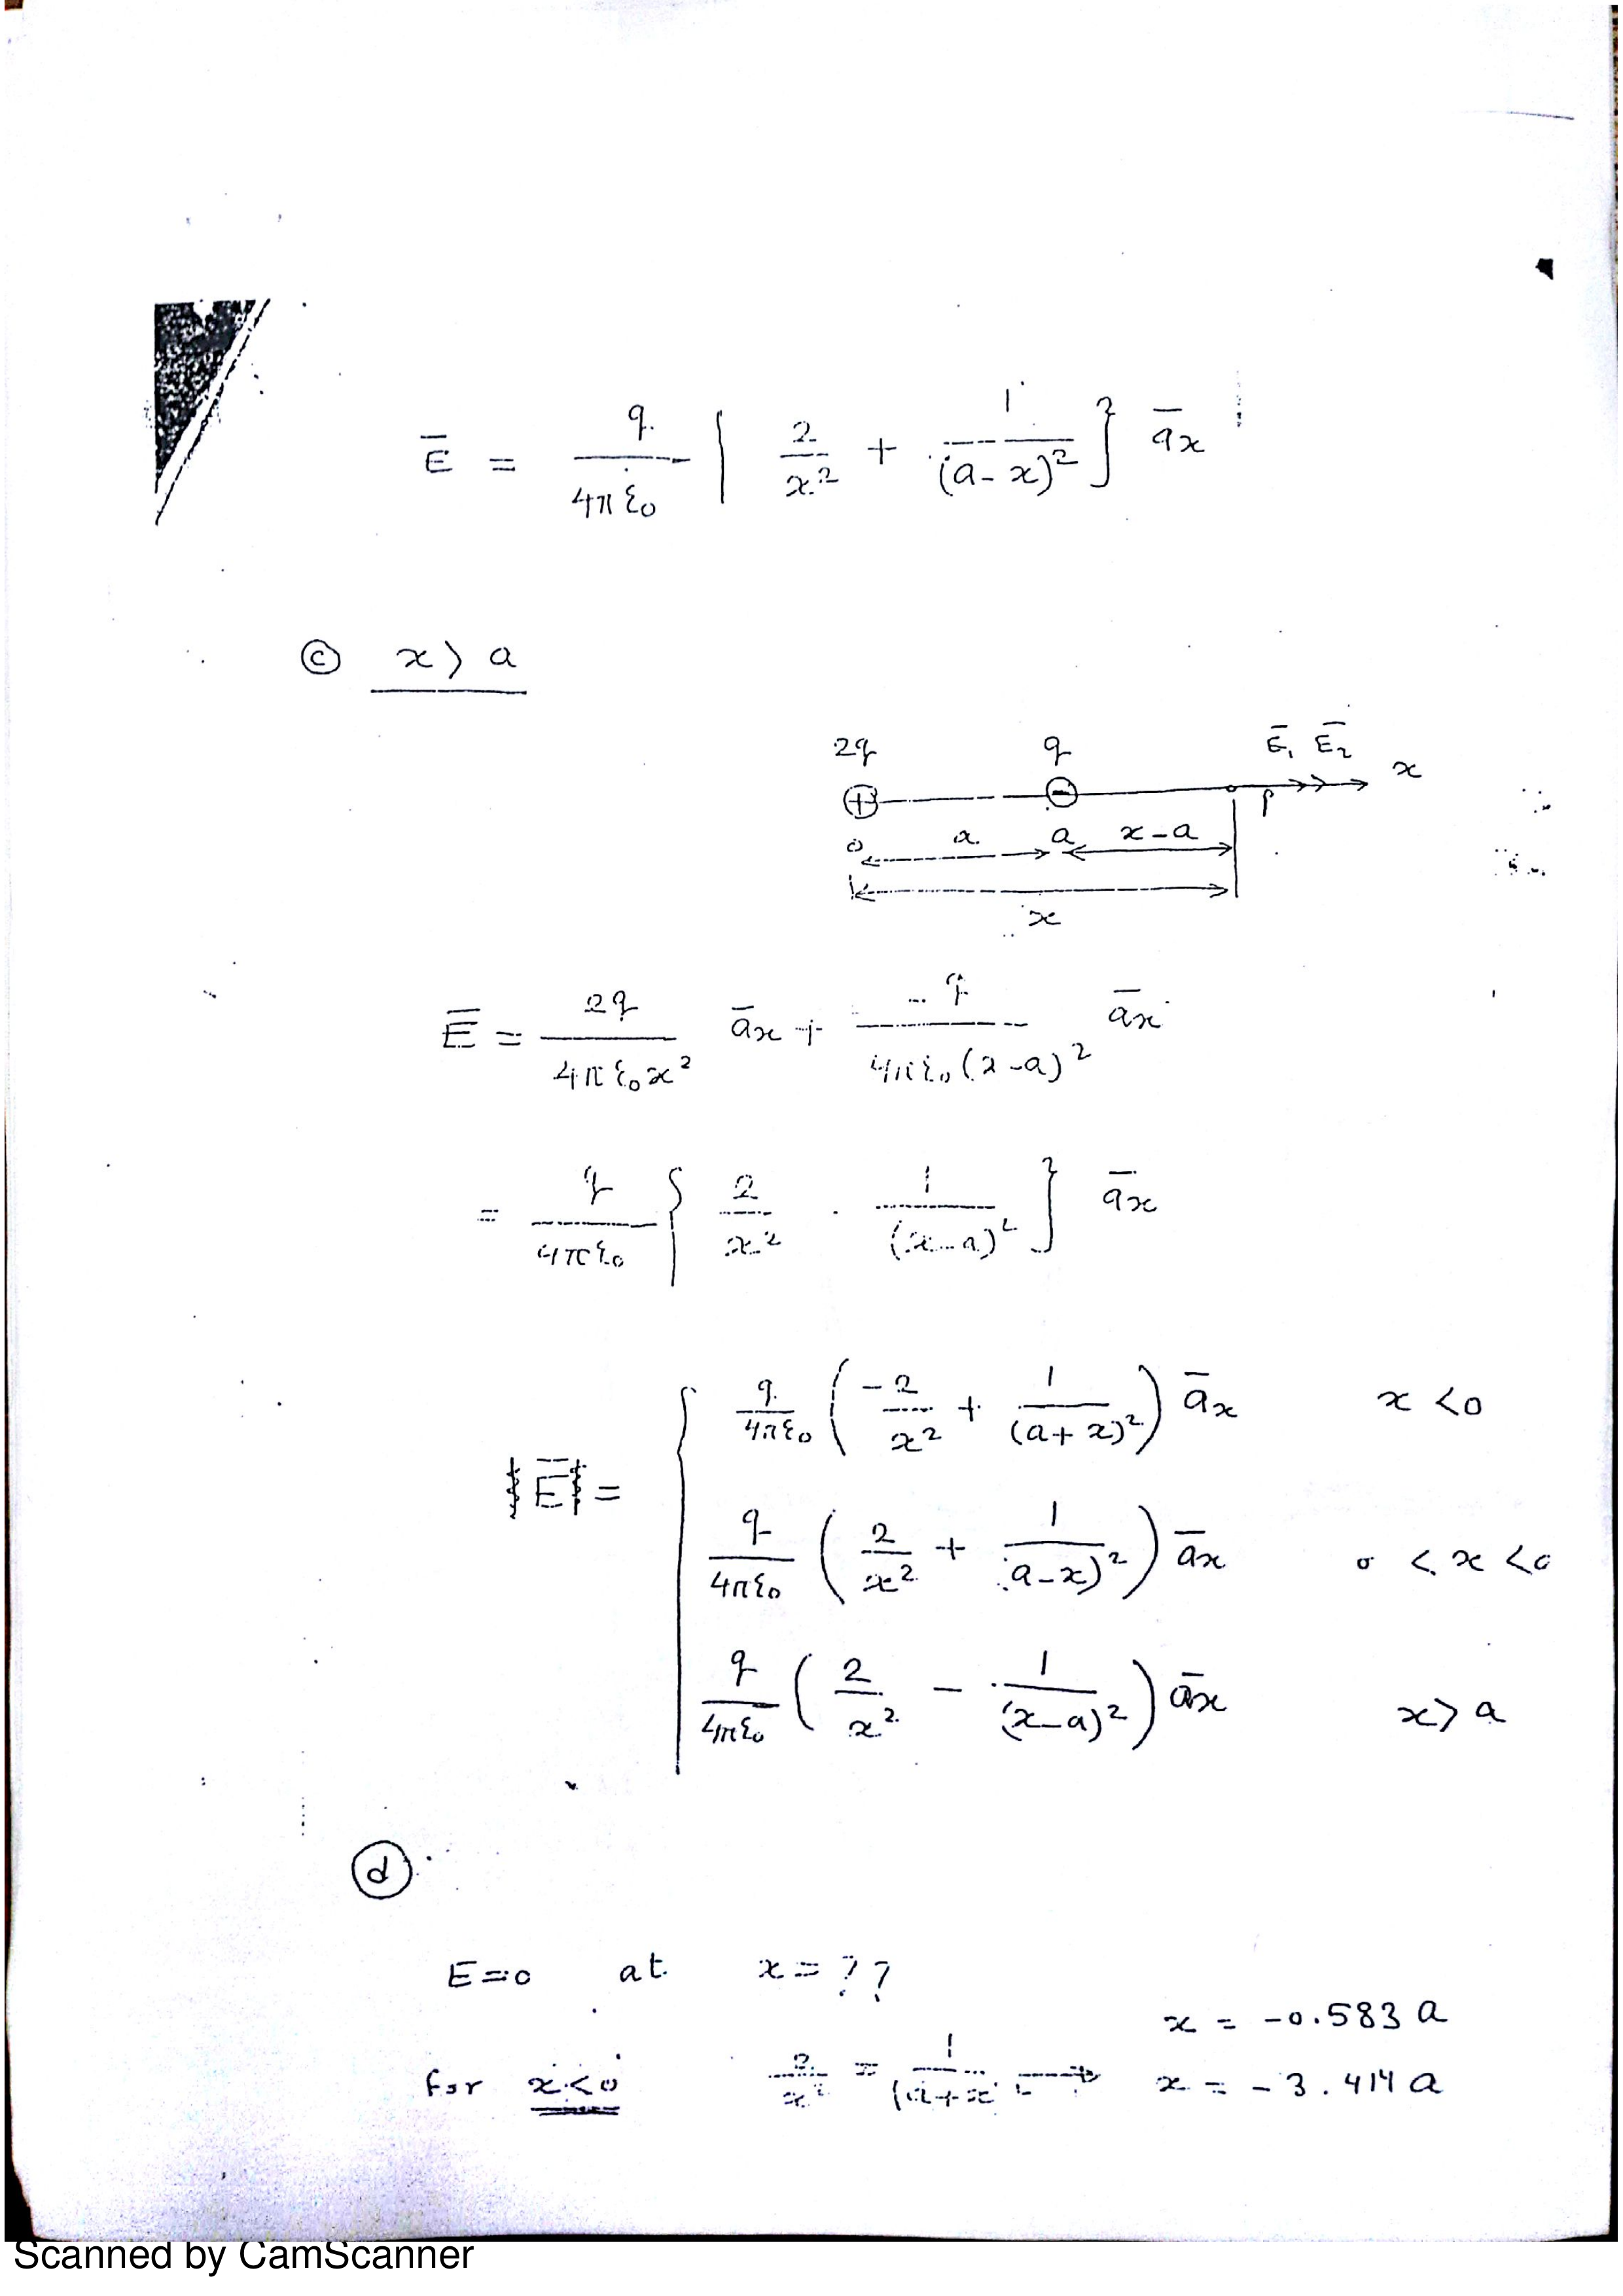 E̅ = q / 4πε₀ { 2 / x² + 1 / (a - x)² } a̅x
ⓒ x > a
2q q E̅₁ E̅₂ x
+ - P
0 a a x - a
x
E̅ = 2q / 4πε₀x² a̅x + - q / 4πε₀(x - a)² a̅x
= q / 4πε₀ { 2 / x² - 1 / (x - a)² } a̅x
E̅ =
q / 4πε₀ ( -2 / x² + 1 / (a + x)² ) a̅x x < 0
q / 4πε₀ ( 2 / x² + 1 / (a - x)² ) a̅x 0 < x <
q / 4πε₀ ( 2 / x² - 1 / (x - a)² ) a̅x x > a
ⓓ
E = 0 at x = ??
x = -0.583 a
for x < 0 2 / x² = 1 / (a + x)² → x = -3.414 a
Scanned by CamScanner